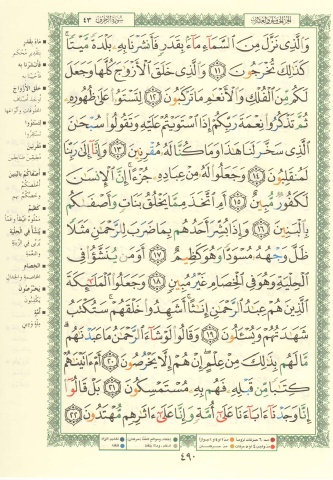 الجزء الخامس والعشرون
سورة الزخرف ٤٣
وَالَّذِي نَزَّلَ مِنَ السَّمَاءِ مَاءً بِقَدَرٍ فَأَنشَرْنَا بِهِ بَلْدَةً مَّيْتًا
كَذَٰلِكَ تُخْرَجُونَ ١١ وَالَّذِي خَلَقَ الْأَزْوَاجَ كُلَّهَا وَجَعَلَ
لَكُم مِّنَ الْفُلْكِ وَالْأَنْعَامِ مَا تَرْكَبُونَ ١٢ لِتَسْتَوُوا عَلَىٰ ظُهُورِهِ
ثُمَّ تَذْكُرُوا نِعْمَةَ رَبِّكُمْ إِذَا اسْتَوَيْتُمْ عَلَيْهِ وَتَقُولُوا سُبْحَانَ
الَّذِي سَخَّرَ لَنَا هَٰذَا وَمَا كُنَّا لَهُ مُقْرِنِينَ ١٣ وَإِنَّا إِلَىٰ رَبِّنَا
لَمُنقَلِبُونَ ١٤ وَجَعَلُوا لَهُ مِنْ عِبَادِهِ جُزْءًا إِنَّ الْإِنسَانَ
لَكَفُورٌ مُّبِينٌ ١٥ أَمِ اتَّخَذَ مِمَّا يَخْلُقُ بَنَاتٍ وَأَصْفَاكُم
بِالْبَنِينَ ١٦ وَإِذَا بُشِّرَ أَحَدُهُم بِمَا ضَرَبَ لِلرَّحْمَٰنِ مَثَلًا
ظَلَّ وَجْهُهُ مُسْوَدًّا وَهُوَ كَظِيمٌ ١٧ أَوَمَن يُنَشَّأُ فِي
الْحِلْيَةِ وَهُوَ فِي الْخِصَامِ غَيْرُ مُبِينٍ ١٨ وَجَعَلُوا الْمَلَائِكَةَ
الَّذِينَ هُمْ عِبَادُ الرَّحْمَٰنِ إِنَاثًا أَشَهِدُوا خَلْقَهُمْ سَتُكْتَبُ
شَهَادَتُهُمْ وَيُسْأَلُونَ ١٩ وَقَالُوا لَوْ شَاءَ الرَّحْمَٰنُ مَا عَبَدْنَاهُم
مَّا لَهُم بِذَٰلِكَ مِنْ عِلْمٍ إِنْ هُمْ إِلَّا يَخْرُصُونَ ٢٠ أَمْ آتَيْنَاهُمْ
كِتَابًا مِّن قَبْلِهِ فَهُم بِهِ مُسْتَمْسِكُونَ ٢١ بَلْ قَالُوا
إِنَّا وَجَدْنَا آبَاءَنَا عَلَىٰ أُمَّةٍ وَإِنَّا عَلَىٰ آثَارِهِم مُّهْتَدُونَ ٢٢
٤٩٠